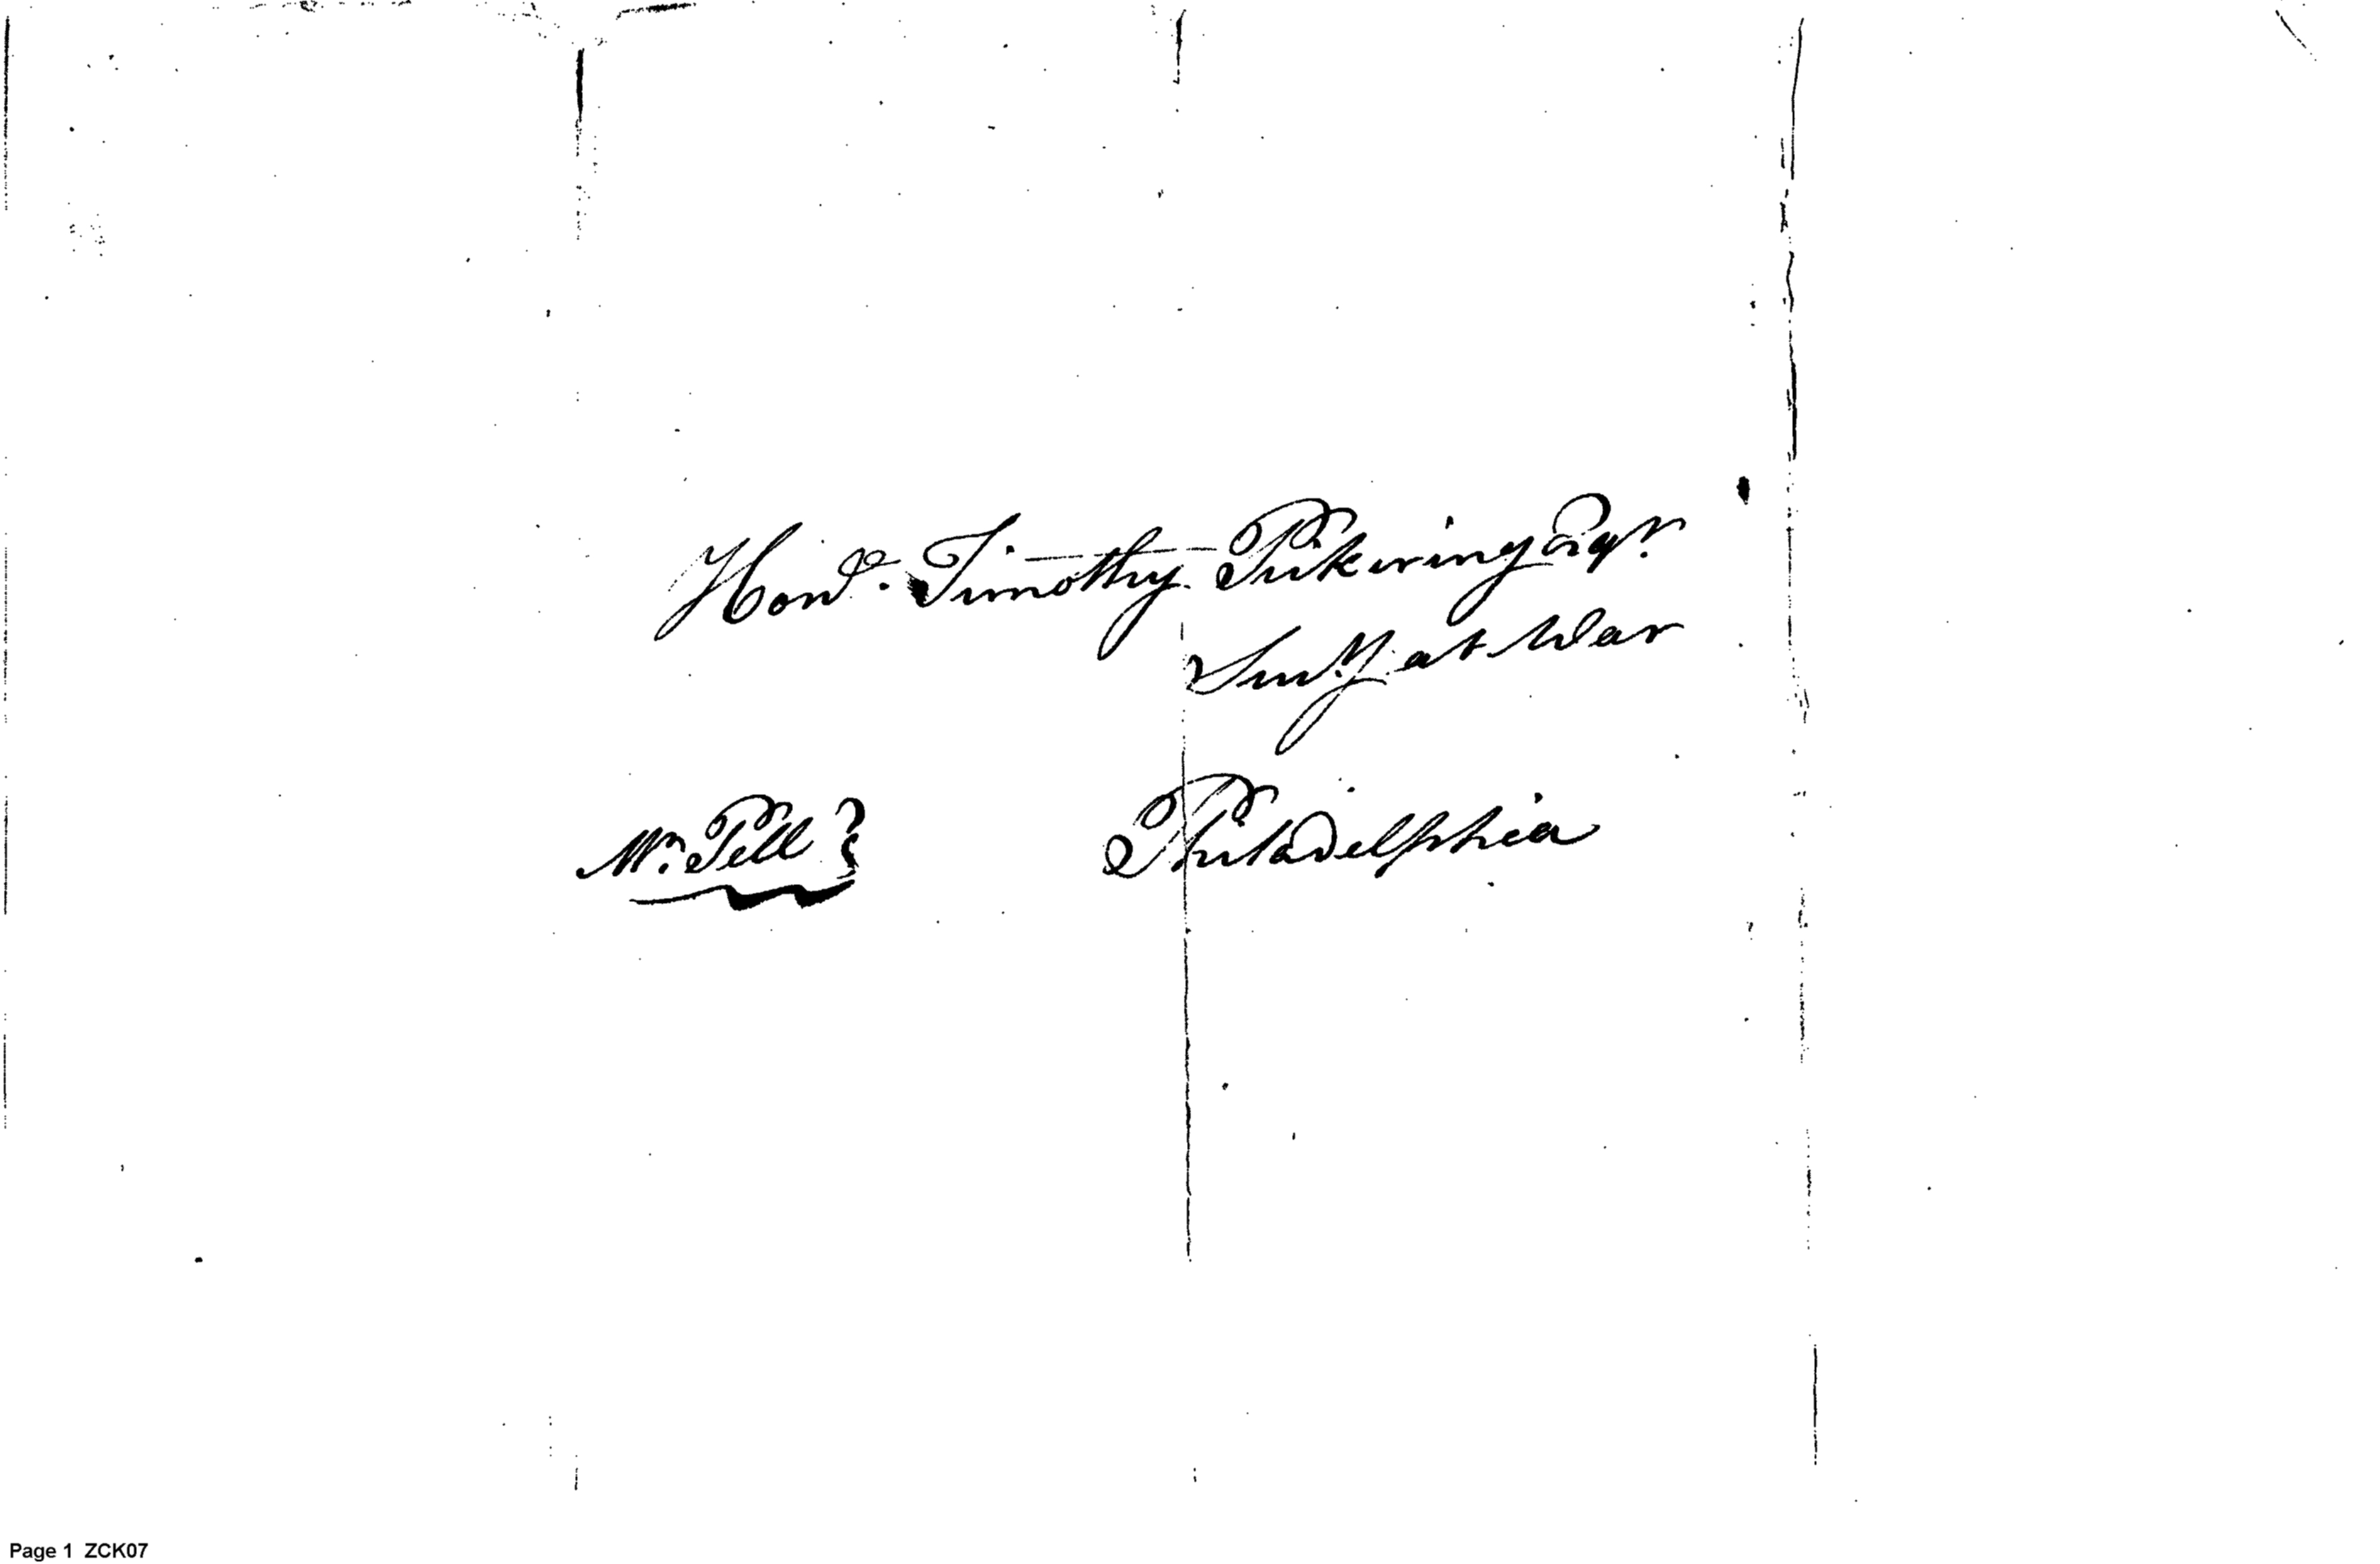 Honble. Timothy Pickering Esqr.
Secty. at War
Mr. Pell
Philadelphia
Page 1 ZCK07